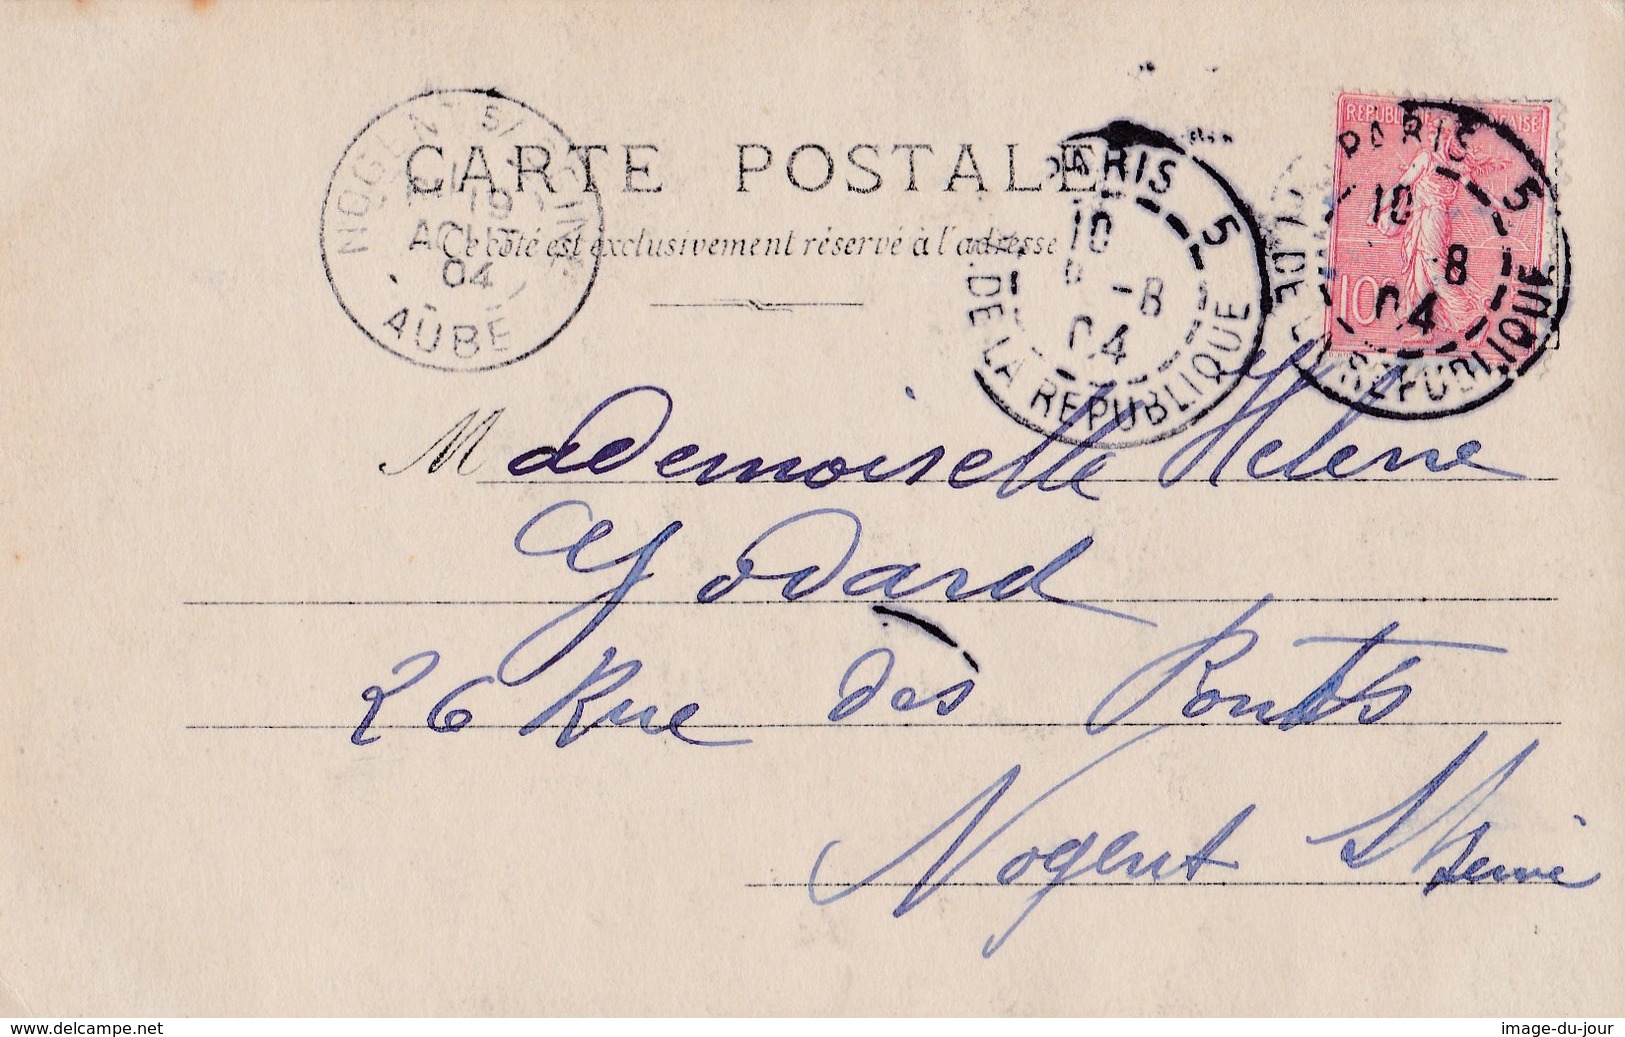 CARTE POSTALE
Ce côté est exclusivement réservé à l'adresse
NOGENT S/ SEINE
19
AOUT
04
AUBE
PARIS 5
10
-8
04
DE LA REPUBLIQUE
REPUBLIQUE FRANÇAISE
10c
PARIS 5
10
8
04
DE LA REPUBLIQUE
Mademoiselle Helene
Godard
26 Rue des Ponts
Nogent S/Seine
www.delcampe.net
image-du-jour